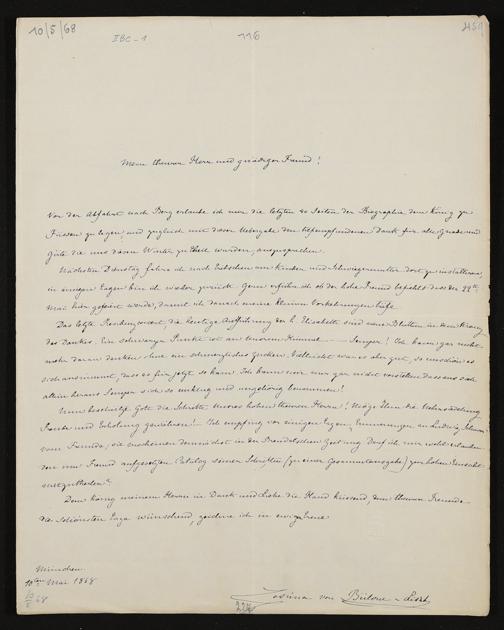 10/5/68
IIBC-1
116
Mein theurer Herr und gnädiger Freund!
Vor der Abfahrt nach Berg erlaube ich mir die letzten 20 Seiten der Biographie dem König zu
Füssen zu legen und zugleich mit dieser Uebergabe den tiefempfundenen Dank für alle Gnade und
Güte die uns diesen Winter zu theil wurden, auszusprechen.
Nächsten Dienstag fahre ich nach um Kinder und Schwiegermutter dort zu installieren,
in einigen Tagen bin ich wieder zurück. Gern erführe ich ob der hohe Freund befiehlt dass der 22te
Mai hier gefeiert werde, damit ich darnach meine kleinen Vorkehrungen treffe.
Das letzte Residenzconcert, die heutige Aufführung der h. Elisabeth sind neue Blüthen in dem Kranz
des Dankes. Ein schwarzer Punkt ist an unserem Himmel — Semper! Ich kann gar nicht
mehr daran denken ohne ein schmerzliches Zucken. Vielleicht war es aber gut, so unschön es
sich ausnimmt, dass es für jetzt so kam. Ich kann mir nun gar nicht vorstellen dass aus sich
allein heraus Semper sich so unklug und ungehörig benommen!
Nun beschütze Gott die Schritte unseres hohen theuren Herrn! Möge Ihm die
Freude und Erholung gewähren! — Ich empfing vor einigen Tagen, Erinnerungen an Ludwig Schnorr
vom Freunde; sie erscheinen demnächst in der Zeitung. Darf ich mir wohl erlauben
den vom Freund aufgesetzten Catalog seiner Schriften (zu einer Gesammtausgabe) zur hohen Einsicht
mitzutheilen?
Dem König meinem Herrn in Dank und Liebe die Hand küssend, dem theuren Freunde
die schönsten Tage wünschend, zeichne ich in ewiger Treue
München
10ten Mai 1868
Cosima von Bülow-Liszt